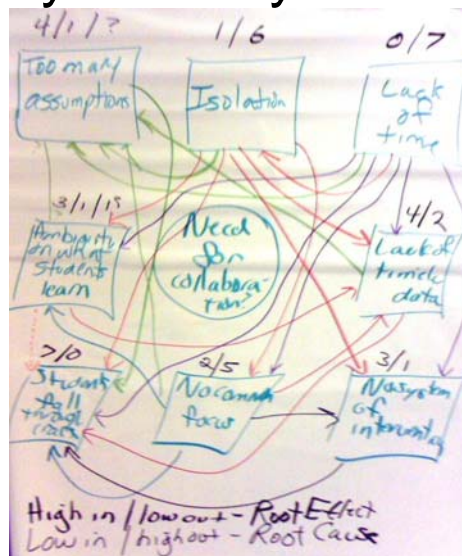 4/1/?
1/6
0/7
Too many
assumptions
Isolation
Lack
of
time
3/1/1?
4/2
Ambiguity
on what
students
learn
Need
for
collabora-
tion?
Lack of
timely
data
7/0
2/5
3/1
Students
fall
through
cracks
No common
focus
No system
of
intervention
High in / low out - Root Effect
Low in / high out - Root Cause